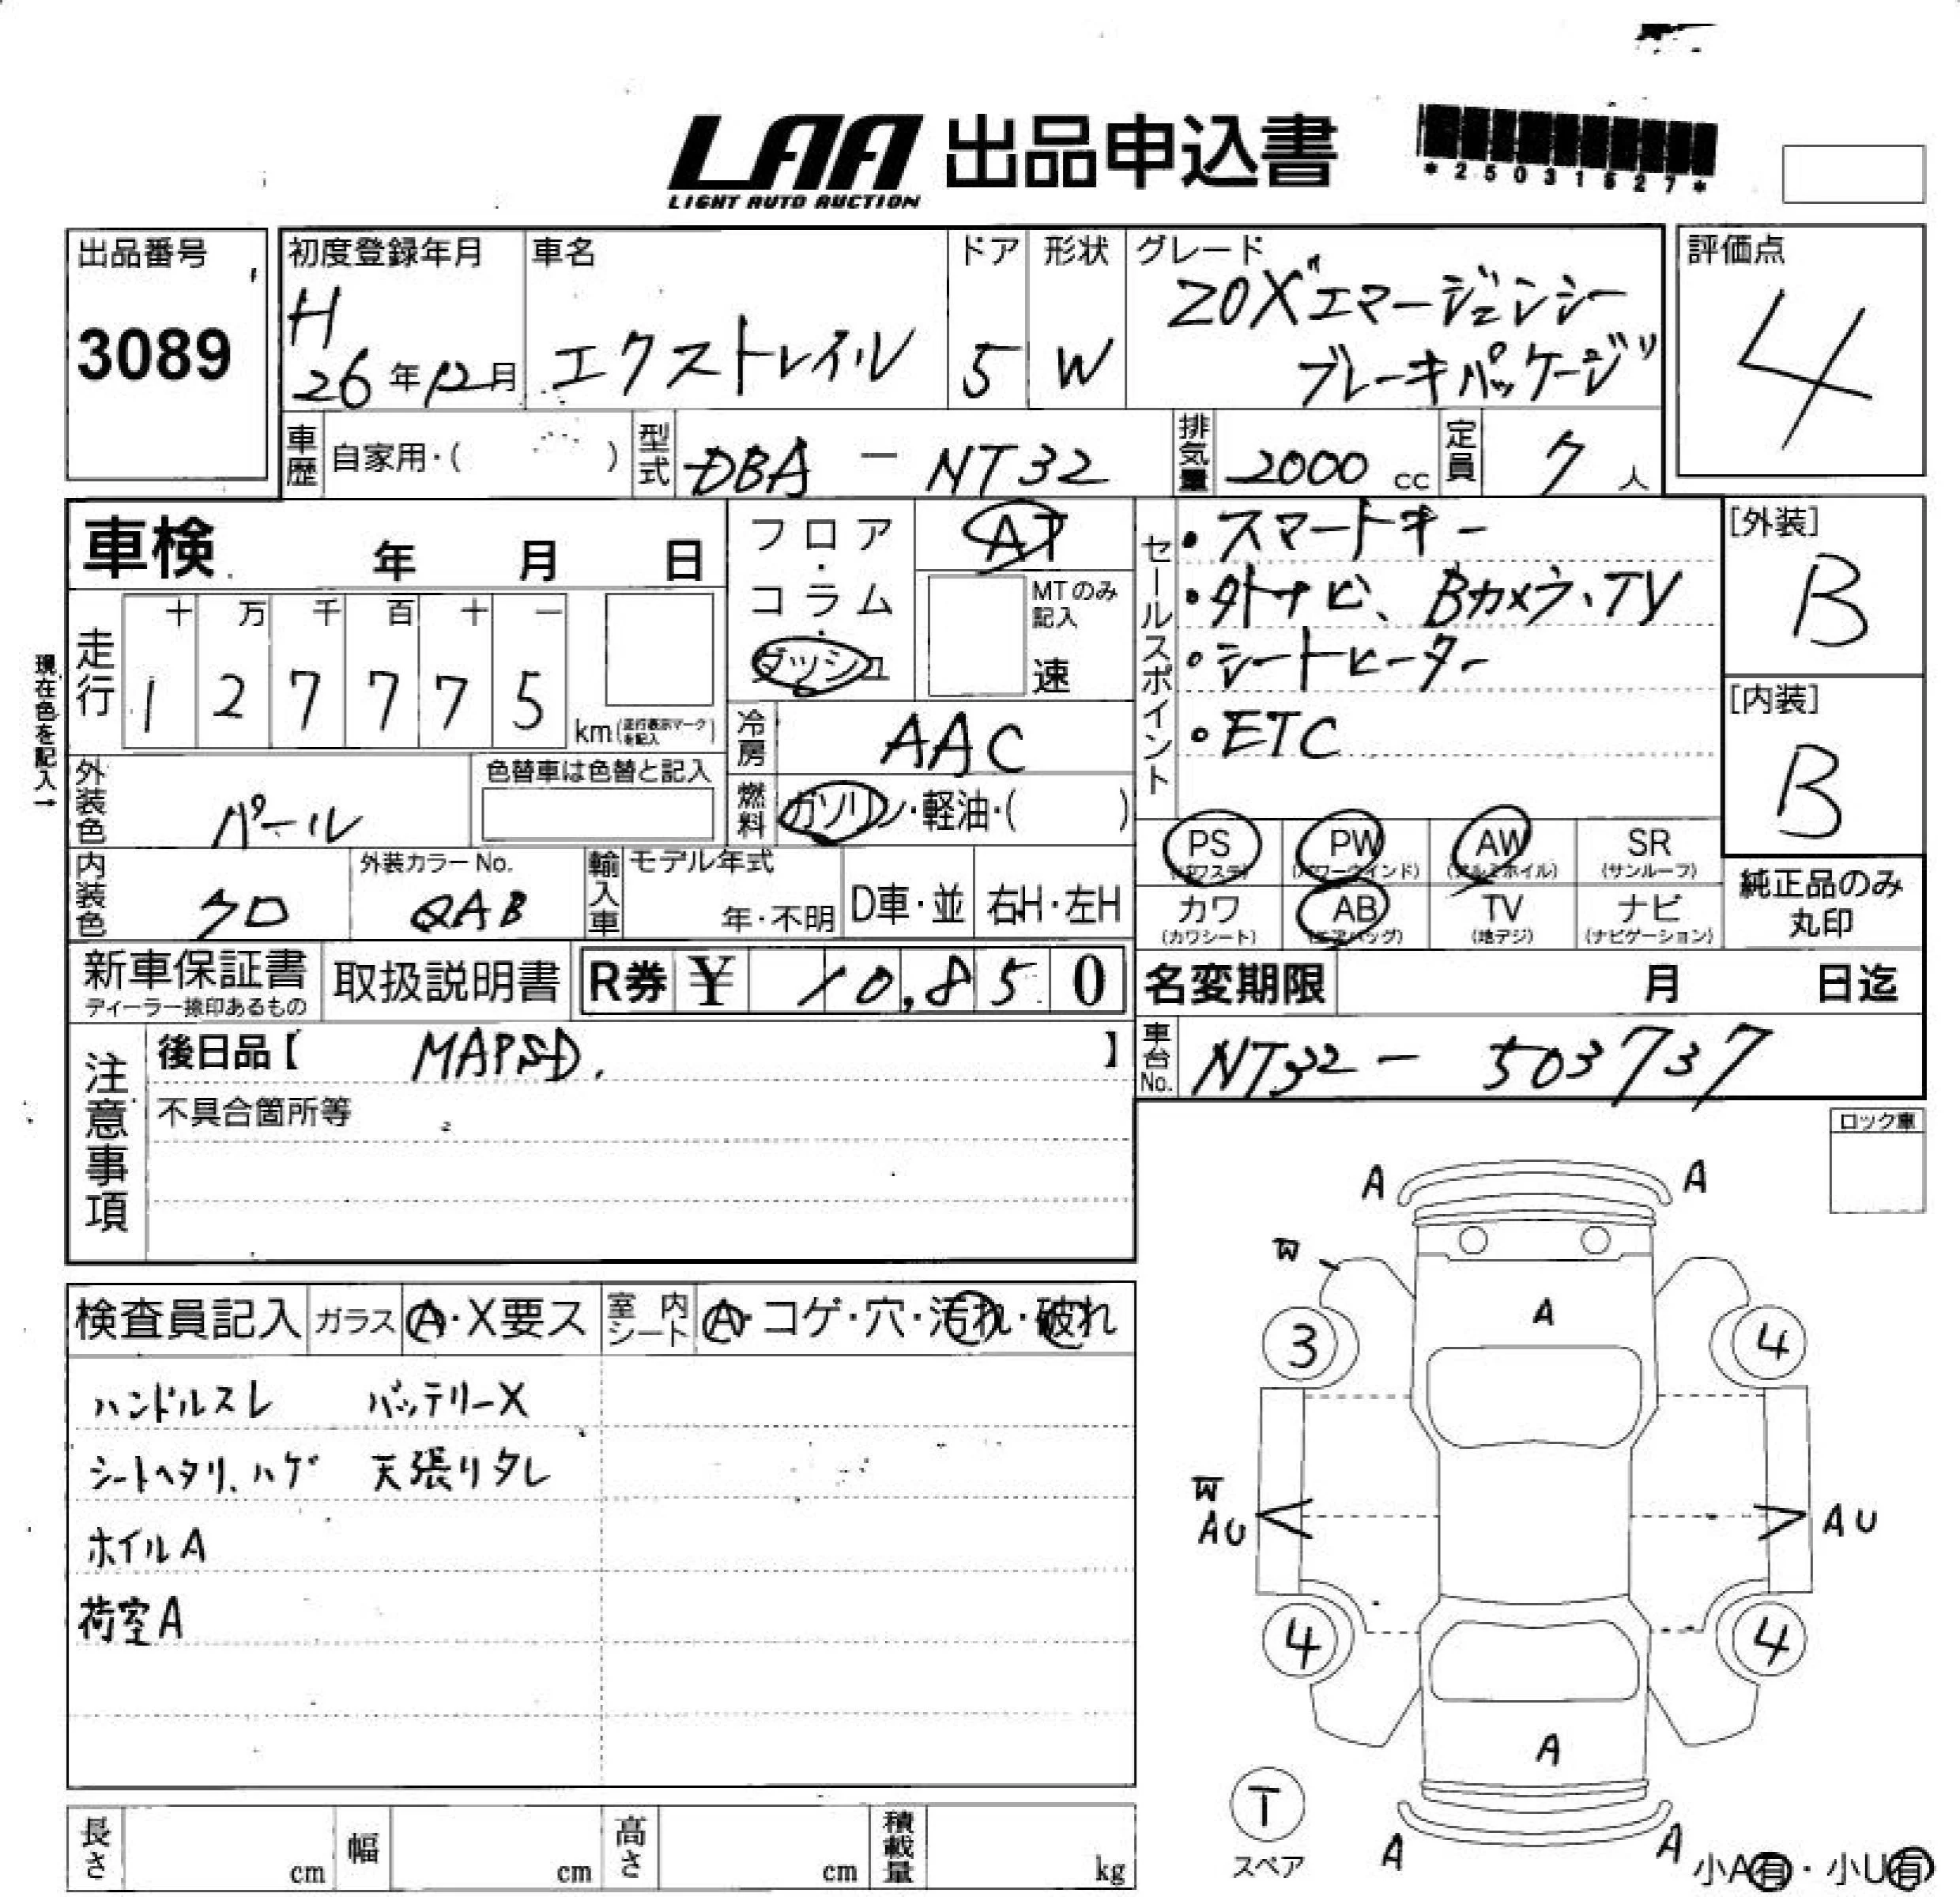 LAA 出品申込書
LIGHT AUTO AUCTION
*25031627*
出品番号
3089
初度登録年月
H
26年12月
車名
エクストレイル
ドア
5
形状
W
グレード
20X"エマージェンシー
ブレーキパッケージ"
評価点
4
車歴 自家用・( )
型式 DBA - NT32
排気量 2000 cc
定員 7 人
車検 年 月 日
フロア・コラム・ダッシュ
AT
MTのみ記入
速
セールスポイント
・スマートキー
・外ナビ、Bカメラ、TV
・シートヒーター
・ETC
[外装]
B
[内装]
B
現在色を記入→
走行
十 万 千 百 十 一
1 2 7 7 7 5
km(走行表示マークを記入)
冷房 AAC
燃料 ガソリン・軽油・( )
外装色 パール
色替車は色替と記入
内装色 クロ
外装カラーNo.
QAB
輸入車
モデル年式
年・不明
D車・並
右H・左H
PS (パワステ)
PW (パワーウインド)
AW (アルミホイル)
SR (サンルーフ)
カワ (カワシート)
AB (エアバッグ)
TV (地デジ)
ナビ (ナビゲーション)
純正品のみ
丸印
新車保証書
ディーラー捺印あるもの
取扱説明書
R券 ¥ 10,850
名変期限 月 日迄
注意事項
後日品【 MAPSD. 】
不具合箇所等
車台No. NT32 - 503737
ロック車
検査員記入
ガラス A・X要ス
室内シート A・コゲ・穴・汚れ・破れ
ハンドルスレ バッテリーX
シートヘタリ、ハゲ 天張りタレ
ホイルA
荷室A
A A
W
A
3 4
W
AU AU
4 4
A
T
スペア
A A
小A有・小U有
長さ cm
幅 cm
高さ cm
積載量 kg